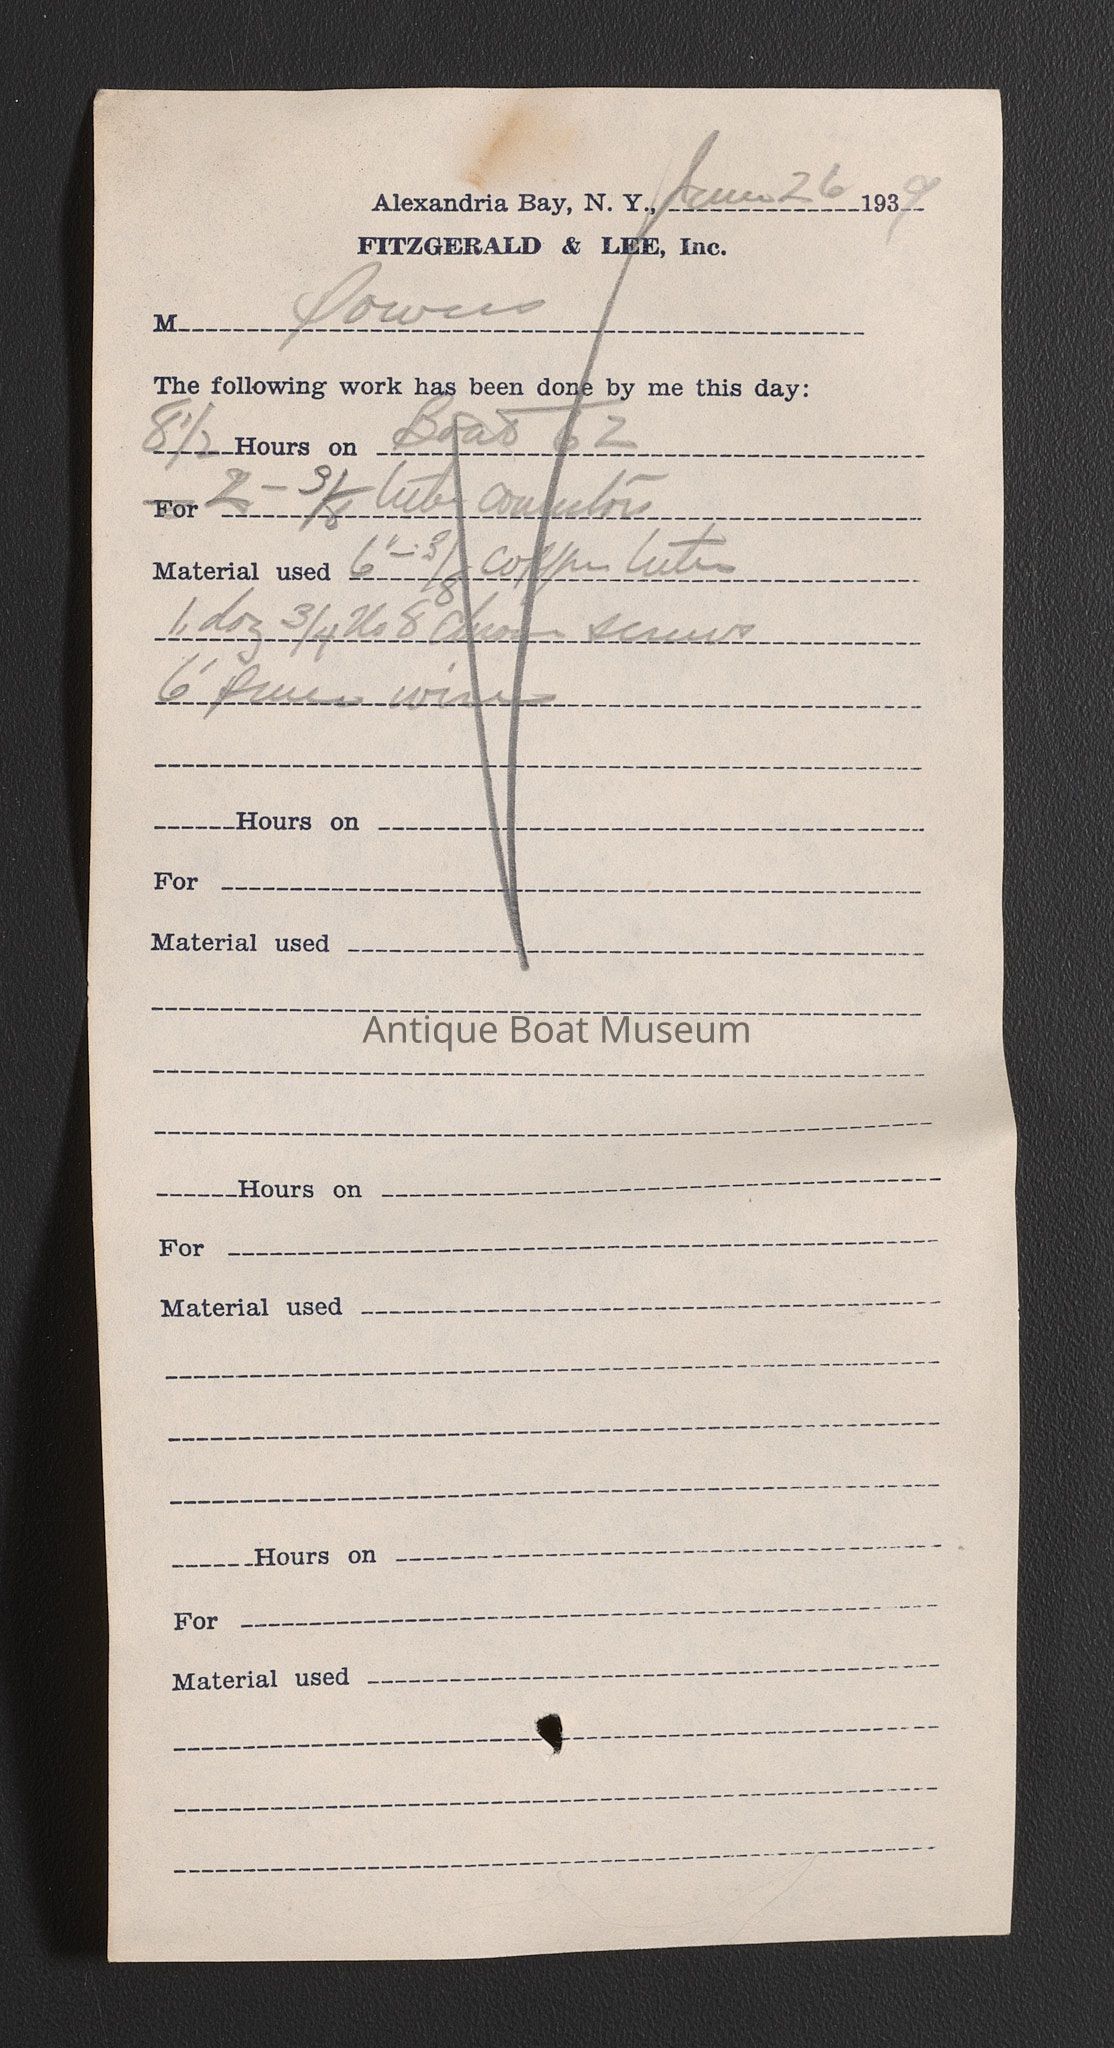 Alexandria Bay, N. Y., June 26 1939
FITZGERALD & LEE, Inc.
M
The following work has been done by me this day:
8 1/2 Hours on Boat 52
For 2 - 3/8 tube connectors
Material used 6' - 3/8 copper tube
1 doz 3/4 No 8 screws
6' wire
Hours on
For
Material used
Antique Boat Museum
Hours on
For
Material used
Hours on
For
Material used